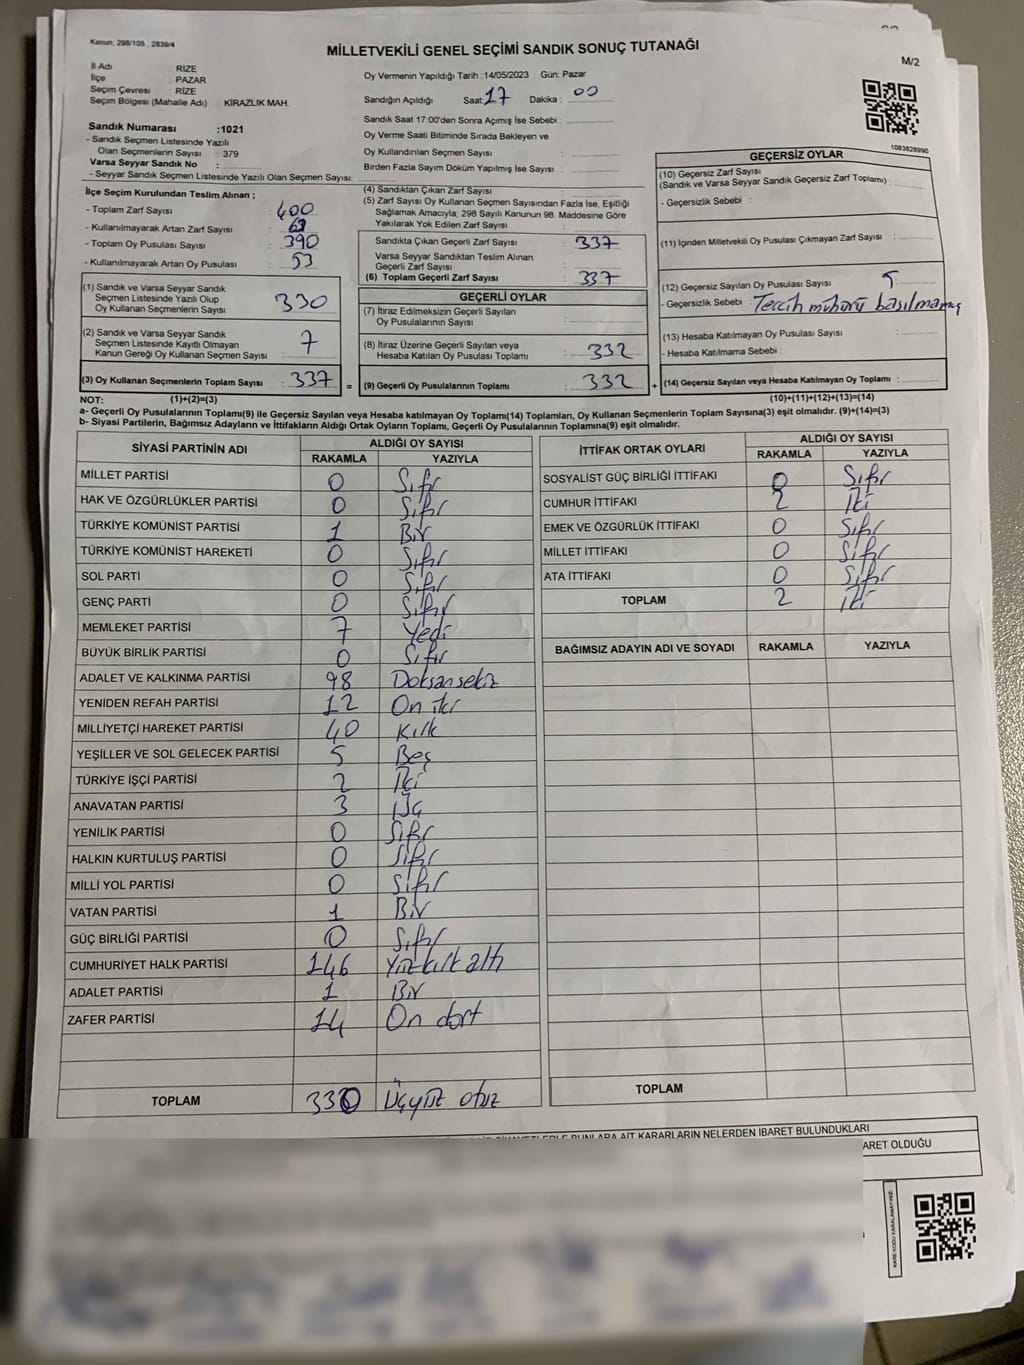 Kanun: 298/105 , 2839/4
MİLLETVEKİLİ GENEL SEÇİMİ SANDIK SONUÇ TUTANAĞI
M/2
İl Adı : RİZE
İlçe : PAZAR
Seçim Çevresi : RİZE
Seçim Bölgesi (Mahalle Adı) : KİRAZLIK MAH.
Sandık Numarası :1021
- Sandık Seçmen Listesinde Yazılı
Olan Seçmenlerin Sayısı : 379
Varsa Seyyar Sandık No :
- Seyyar Sandık Seçmen Listesinde Yazılı Olan Seçmen Sayısı:
Oy Vermenin Yapıldığı Tarih :14/05/2023 Gün: Pazar
Sandığın Açıldığı Saat: 17 Dakika : 00
Sandık Saat 17:00'den Sonra Açımış İse Sebebi :
Oy Verme Saati Bitiminde Sırada Bekleyen ve
Oy Kullandırılan Seçmen Sayısı :
Birden Fazla Sayım Döküm Yapılmış İse Sayısı :
1083828990
İlçe Seçim Kurulundan Teslim Alınan ;
- Toplam Zarf Sayısı : 400
- Kullanılmayarak Artan Zarf Sayısı :
- Toplam Oy Pusulası Sayısı : 390
- Kullanılmayarak Artan Oy Pusulası : 53
(1) Sandık ve Varsa Seyyar Sandık
Seçmen Listesinde Yazılı Olup
Oy Kullanan Seçmenlerin Sayısı : 330
(2) Sandık ve Varsa Seyyar Sandık
Seçmen Listesinde Kayıtlı Olmayan
Kanun Gereği Oy Kullanan Seçmen Sayısı : 7
(3) Oy Kullanan Seçmenlerin Toplam Sayısı : 337 =
(4) Sandıktan Çıkan Zarf Sayısı :
(5) Zarf Sayısı Oy Kullanan Seçmen Sayısından Fazla İse, Eşitliği
Sağlamak Amacıyla; 298 Sayılı Kanunun 98. Maddesine Göre
Yakılarak Yok Edilen Zarf Sayısı :
Sandıkta Çıkan Geçerli Zarf Sayısı : 337
Varsa Seyyar Sandıktan Teslim Alınan
Geçerli Zarf Sayısı :
(6) Toplam Geçerli Zarf Sayısı : 337
GEÇERLİ OYLAR
(7) İtiraz Edilmeksizin Geçerli Sayılan
Oy Pusulalarının Sayısı :
(8) İtiraz Üzerine Geçerli Sayılan veya
Hesaba Katılan Oy Pusulası Toplamı : 332
(9) Geçerli Oy Pusulalarının Toplamı : 332 +
GEÇERSİZ OYLAR
(10) Geçersiz Zarf Sayısı
(Sandık ve Varsa Seyyar Sandık Geçersiz Zarf Toplamı) :
- Geçersizlik Sebebi :
(11) İçinden Milletvekili Oy Pusulası Çıkmayan Zarf Sayısı :
(12) Geçersiz Sayılan Oy Pusulası Sayısı : 5
- Geçersizlik Sebebi : Tercih mühürü basılmamış
(13) Hesaba Katılmayan Oy Pusulası Sayısı :
- Hesaba Katılmama Sebebi :
(14) Geçersiz Sayılan veya Hesaba Katılmayan Oy Toplamı :
NOT: (1)+(2)=(3) (10)+(11)+(12)+(13)=(14)
a- Geçerli Oy Pusulalarının Toplamı(9) ile Geçersiz Sayılan veya Hesaba katılmayan Oy Toplamı(14) Toplamları, Oy Kullanan Seçmenlerin Toplam Sayısına(3) eşit olmalıdır. (9)+(14)=(3)
b- Siyasi Partilerin, Bağımsız Adayların ve İttifakların Aldığı Ortak Oyların Toplamı, Geçerli Oy Pusulalarının Toplamına(9) eşit olmalıdır.
SİYASİ PARTİNİN ADI ALDIĞI OY SAYISI
RAKAMLA YAZIYLA
MİLLET PARTİSİ 0 Sıfır
HAK VE ÖZGÜRLÜKLER PARTİSİ 0 Sıfır
TÜRKİYE KOMÜNİST PARTİSİ 1 Bir
TÜRKİYE KOMÜNİST HAREKETİ 0 Sıfır
SOL PARTİ 0 Sıfır
GENÇ PARTİ 0 Sıfır
MEMLEKET PARTİSİ 7 Yedi
BÜYÜK BİRLİK PARTİSİ 0 Sıfır
ADALET VE KALKINMA PARTİSİ 98 Doksansekiz
YENİDEN REFAH PARTİSİ 12 On iki
MİLLİYETÇİ HAREKET PARTİSİ 40 Kırk
YEŞİLLER VE SOL GELECEK PARTİSİ 5 Beş
TÜRKİYE İŞÇİ PARTİSİ 2 İki
ANAVATAN PARTİSİ 3 Üç
YENİLİK PARTİSİ 0 Sıfır
HALKIN KURTULUŞ PARTİSİ 0 Sıfır
MİLLİ YOL PARTİSİ 0 Sıfır
VATAN PARTİSİ 1 Bir
GÜÇ BİRLİĞİ PARTİSİ 0 Sıfır
CUMHURİYET HALK PARTİSİ 146 Yüzkırk altı
ADALET PARTİSİ 1 Bir
ZAFER PARTİSİ 14 On dört
TOPLAM 330 Üçyüz otuz
İTTİFAK ORTAK OYLARI ALDIĞI OY SAYISI
RAKAMLA YAZIYLA
SOSYALİST GÜÇ BİRLİĞİ İTTİFAKI 0 Sıfır
CUMHUR İTTİFAKI 2 İki
EMEK VE ÖZGÜRLÜK İTTİFAKI 0 Sıfır
MİLLET İTTİFAKI 0 Sıfır
ATA İTTİFAKI 0 Sıfır
TOPLAM 2 İki
BAĞIMSIZ ADAYIN ADI VE SOYADI RAKAMLA YAZIYLA
TOPLAM
BUNLARA AİT KARARLARIN NELERDEN İBARET BULUNDUKLARI
ARET OLDUĞU